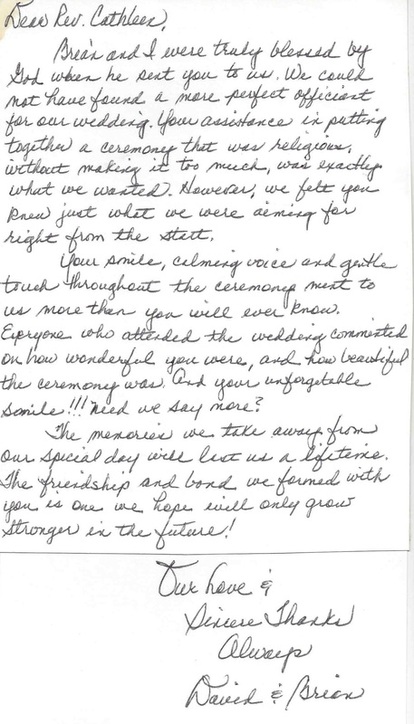 Dear Rev. Cathleen,
Brian and I were truly blessed by
God when he sent you to us. We could
not have found a more perfect officiant
for our wedding. Your assistance in putting
together a ceremony that was religious,
without making it too much, was exactly
what we wanted. However, we felt you
knew just what we were aiming for
right from the start.
Your smile, calming voice and gentle
touch throughout the ceremony ment to
us more than you will ever know.
Everyone who attended the wedding commented
on how wonderful you were, and how beautiful
the ceremony was. And your unforgetable
smile!!! Need we say more?
The memories we take away from
our special day will last us a lifetime.
The friendship and bond we formed with
you is one we hope will only grow
stronger in the future!
Our Love &
Sincere Thanks
Always
David & Brian